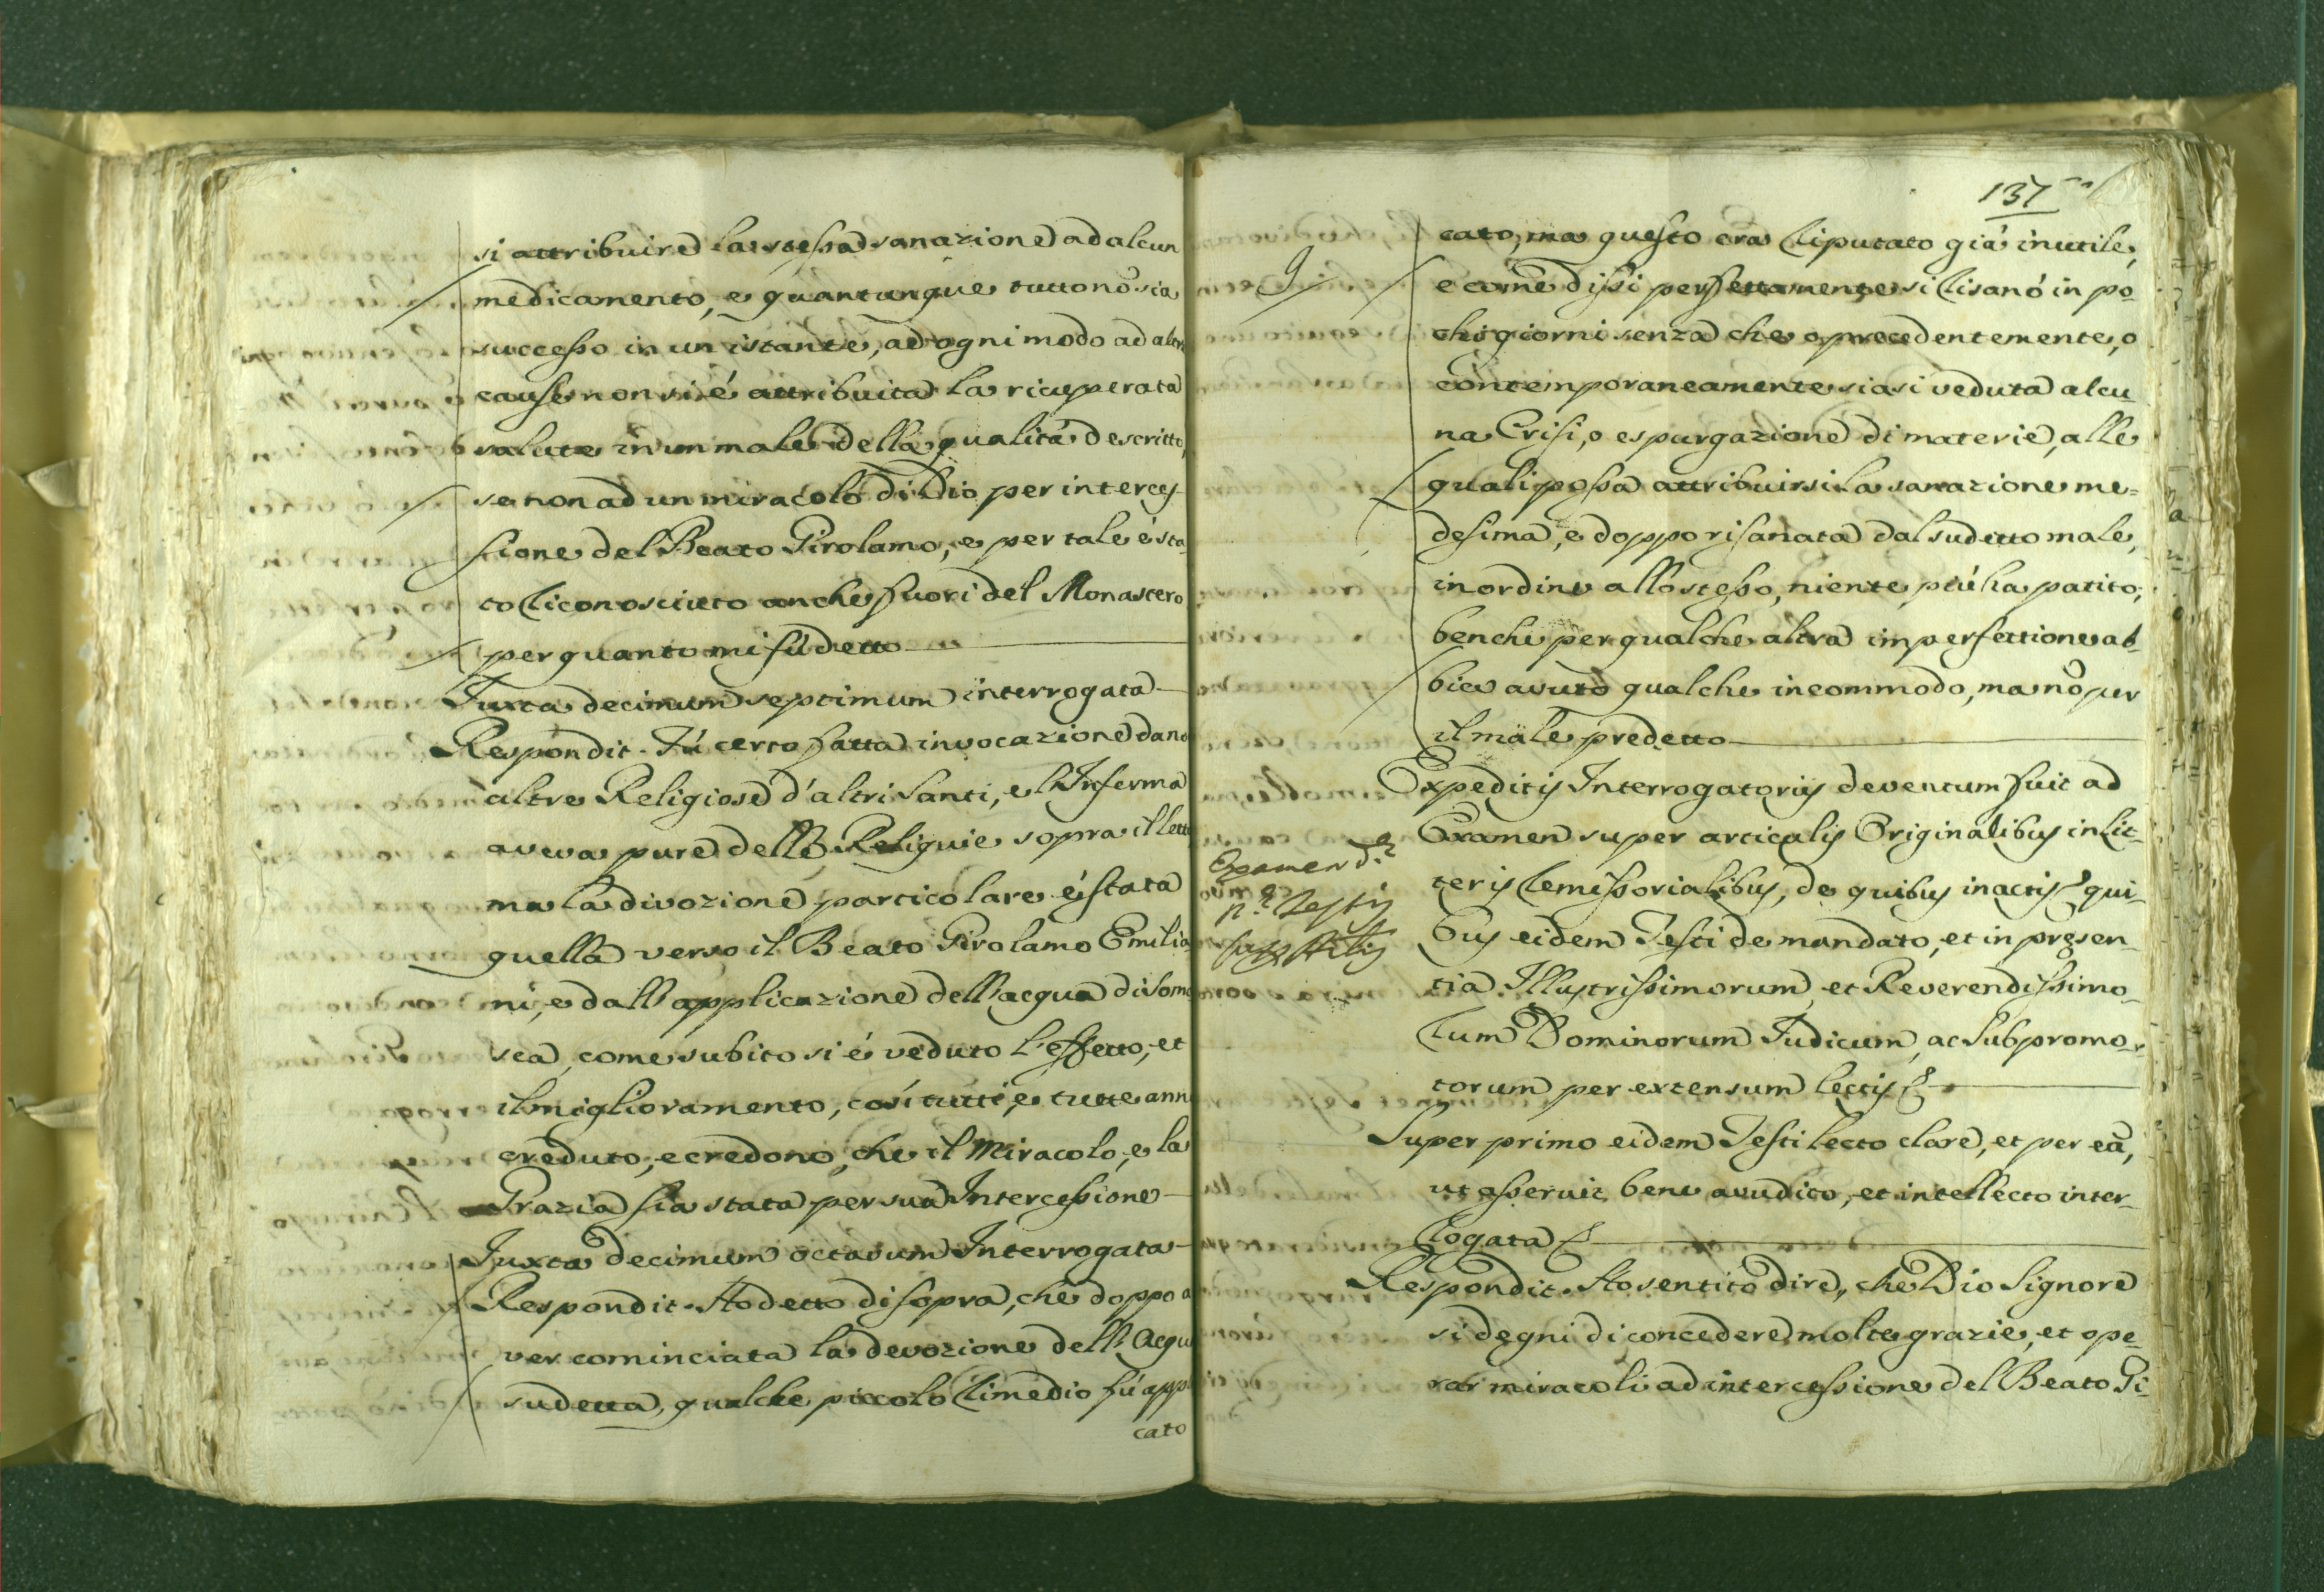 si attribuire la stessa sanazione ad alcun
medicamento, e quantunque tutto nõ sia
successo in un istante, ad ogni modo ad altre
cause non si é attribuita la ricuperata
salute in un male della qualitá descritto,
se non ad un miracolo di Dio per interces-
sione del Beato Girolamo, e per tale é sta
to riconosciuto anche fuori del Monastero
per quanto mi fú detto
Juxta decimum septimum interrogata
Respondit. Fú certo fatta invocazione dano
altre Religiose d'altri Santi, e l'Inferma
aveva pure delle Reliquie sopra il letto
ma la divozione particolare é stata
quella verso il Beato Girolamo Emilia
ni, e dall'applicazione dell'acqua di Soma
sca, come subito si é veduto l'effetto, et
il miglioramento, cosí tutti, e tutte anno
creduto, e credono, che il Miracolo, e la
Grazia sia stata per sua Intercessione
Juxta decimum octavum Interrogata
Respondit. Ho detto di sopra, che doppo a
ver cominciata la devozione dell'Acqua
sudetta, qualche piccolo rimedio fú appli
cato
137
cato, ma questo era riputato giá inutile,
e come dissi perfettamente si risanó in po-
chi giorni senza che o precedentemente, o
contemporaneamente siasi veduta alcu-
na Crisi, o espurgazione di materie, alle
quali possa attribuirsi la sanazione me=
desima, e doppo risanata dal sudetto male,
in ordine allo stesso, niente piú ha patito,
benche per qualche altra imperfettione ab-
bia avuto qualche incommodo, ma nõ per
il male predetto
Expeditis Interrogatoriis deventum fuit ad
Examen super articulis Originalibus in Lit-
teris remissorialibus, de quibus in actis, qui-
bus eidem Testi de mandato, et in presen-
tia Illustrissimorum, et Reverendissimo-
rum Dominorum Judicum, ac Subpromo-
torum per extensum lectis
Examen d.ę
n.ę Testis
super Artis
Super primo eidem Testi lecto clare, et per eã,
ut asseruit bene avudito, et intellecto inter-
rogata
Respondit. Ho sentito dire, che Dio Signore
si degni di concedere molte grazie, et ope-
rar miracoli ad intercessione del Beato Gi-